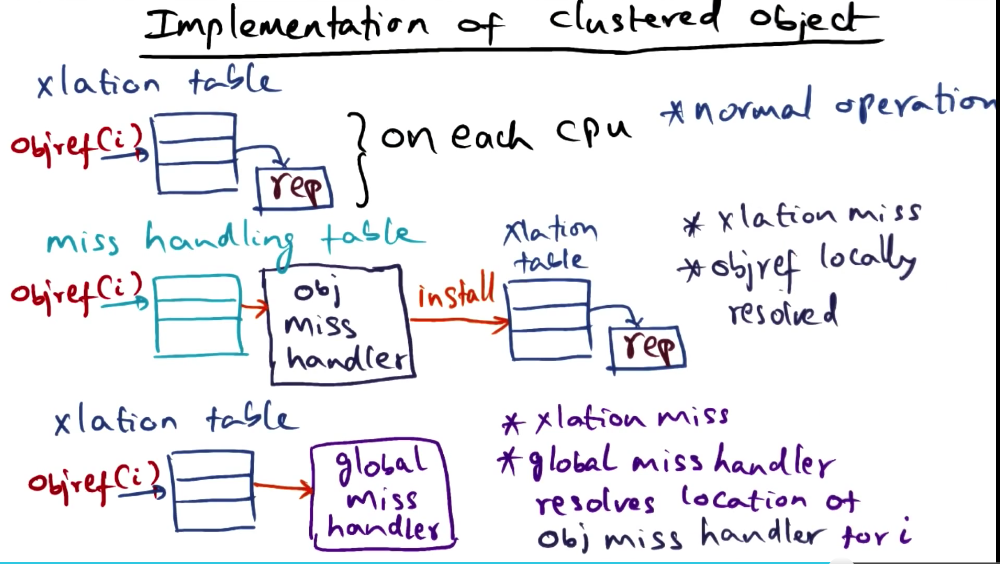 Implementation of clustered object
xlation table
objref(i)
rep
on each cpu
* normal operation
miss handling table
objref(i)
obj
miss
handler
install
xlation
table
rep
* xlation miss
* objref locally
resolved
xlation table
objref(i)
global
miss
handler
* xlation miss
* global miss handler
resolves location of
obj miss handler for i